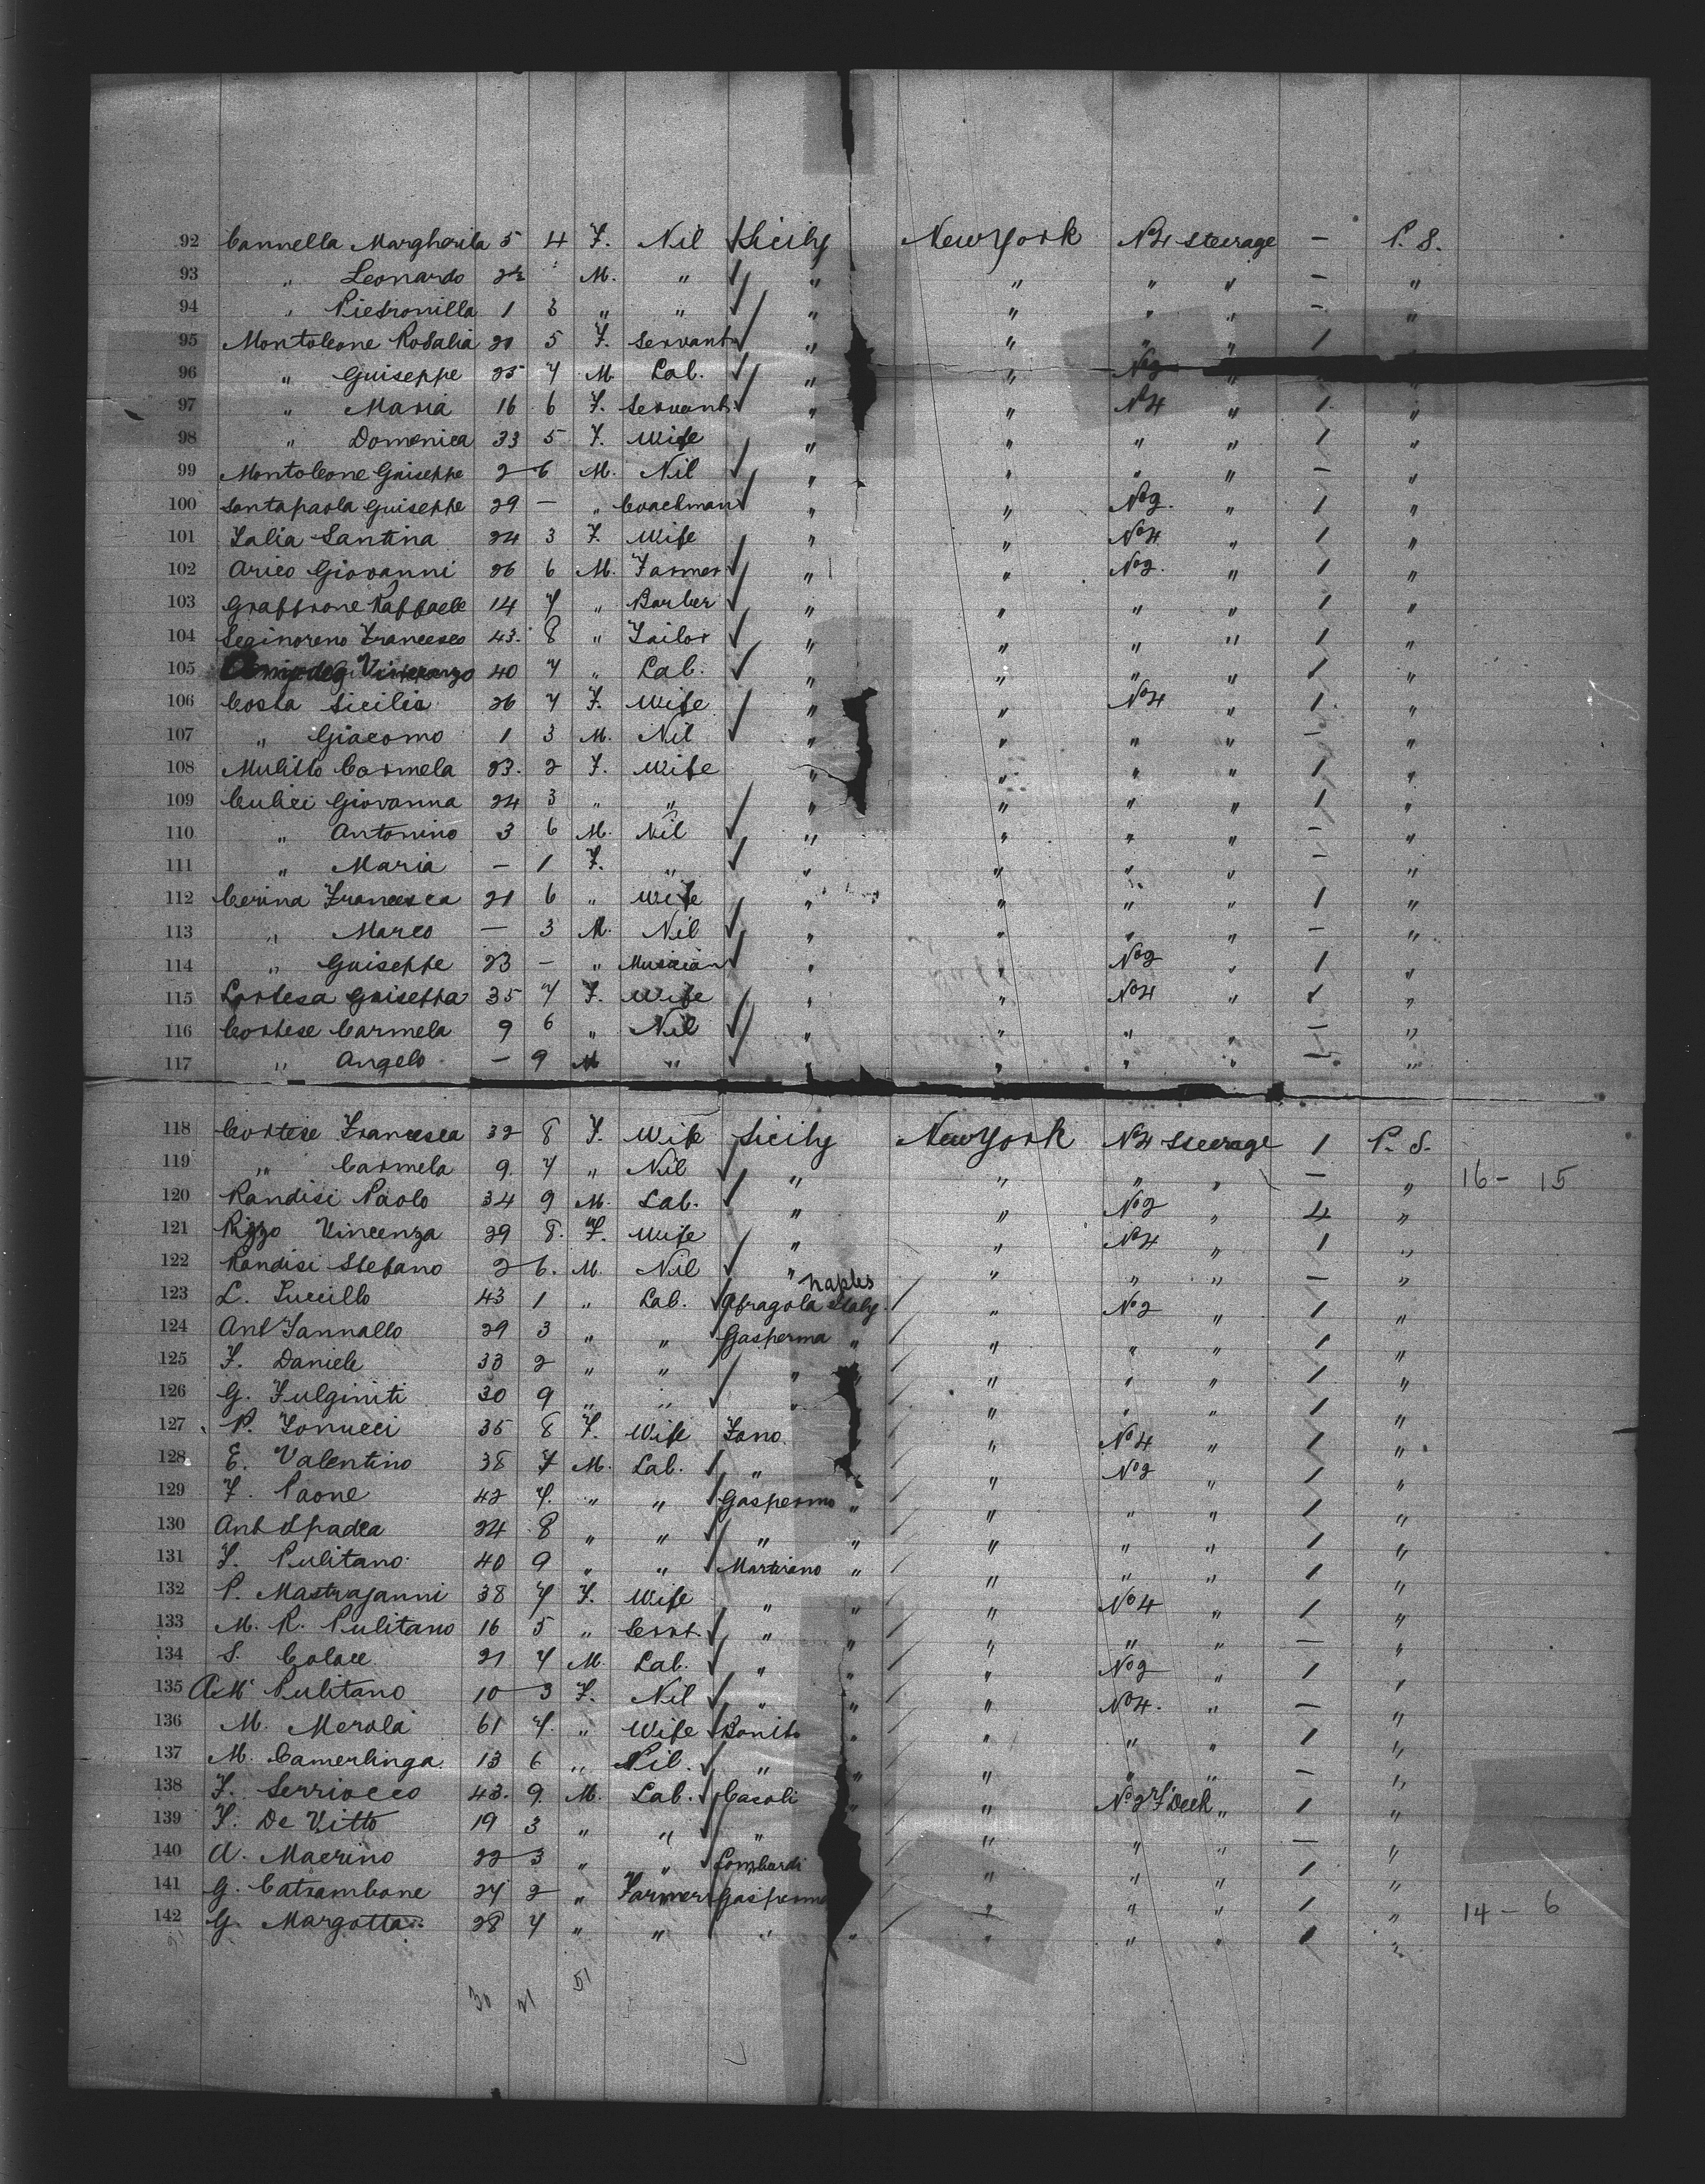 92 Cannella Margherita 5 4 F. Nil Sicily New York No 4 steerage — P. S.
93 " Leonardo M. " " " " " — "
94 " Pietronilla 1 3 " " " " " " — "
95 Montoleone Rosalia 20 5 F. Servant " " " " 1
96 " Guiseppe 25 7 M. Lab. " " No 2
97 " Maria 16 6 F. Servant " " No 4 " 1 "
98 " Domenica 33 5 F. Wife " " " " 1 "
99 Montoleone Guiseppe 2 6 M. Nil " " " " — "
100 Santapaola Guiseppe 29 — " Coachman " " No 2. " 1 "
101 Talia Santina 24 3 F. Wife " " No 4 " 1 "
102 Arico Giovanni 26 6 M. Farmer " " No 2. " 1 "
103 Graffione Raffaele 14 7 " Barber " " " " 1 "
104 Seginoreno Francesco 43. 8 " Tailor " " " " 1 "
105 40 7 " Lab. " " " " 1 "
106 Costa Sicilia 26 7 F. Wife " " No 4 " 1 "
107 " Giacomo 1 3 M. Nil " " " " — "
108 Mulitto Carmela 23. 2 F. Wife " " " " 1 "
109 Culici Giovanna 24 3 " " " " " " 1 "
110 " Antonino 3 6 M. Nil " " " " — "
111 " Maria — 1 F. " " " " " — "
112 Cerina Francesca 21 6 " Wife " " " " 1 "
113 " Marco — 3 M. Nil " " " " — "
114 " Guiseppe 23 — " Musician " " No 2 " 1 "
115 Cortesa Guiseppa 35 7 F. Wife " " No 4 " 1 "
116 Cortese Carmela 9 6 " Nil " " " " — "
117 " Angelo — 9 M " " " " " — "
118 Cortese Francesca 32 8 F. Wife Sicily New York No 4 Steerage 1 P. S.
119 " Carmela 9. 7 " Nil " " " " — " 16 - 15
120 Randisi Paolo 34 9 M. Lab. " " No 2 " 4 "
121 Rizzo Vincenza 29 8. F. Wife " " No 4 " 1 "
122 Randisi Stefano 2 6. M. Nil " " " " — "
Naples
123 L. Luccillo 43 1 " Lab. Afragola Italy. " No 2 " 1 "
124 Ant Iannallo 29 3 " " Gasperina " " " " 1 "
125 F. Daniele 33 2 " " " " " " " 1 "
126 G. Fulginiti 30 9 " " " " " " 1 "
127 P. Ionucci 35 8 F. Wife Fano. " " No 4 " 1 "
128 E. Valentino 38 7 M. Lab. " " No 2 " 1 "
129 F. Paone 42 7. " " Gasperino " " " " 1 "
130 Ant Spadea 24 8 " " " " " " " 1 "
131 F. Pulitano 40 9 " " Martirano " " " " 1 "
132 P. Mastrajanni 38 7 F. Wife " " " No 4 " 1 "
133 M. R. Pulitano 16 5 " Servt. " " " " " — "
134 S. Colace 21 7 M. Lab. " " " No 2 " 1 "
135 A. M. Pulitano 10 3 F. Nil " " " No 4. " — "
136 M. Merola 61 7. " Wife Bonito " " " " 1 "
137 M. Camerlinga 13 6 " Nil. " " " " " — "
138 F. Serriocco 43. 9. M. Lab. Casoli " " No 2 F Deck " 1 "
139 F. De Vitto 19 3 " " " " " " — "
140 A. Macrino 22 3 " " Lombardi " " " 1 "
141 G. Catrambone 24 2 " Farmer Gasperina " " " 1 " 14 - 6
142 G. Margotta 28 7 " " " " " " " 1 "
30 21 51